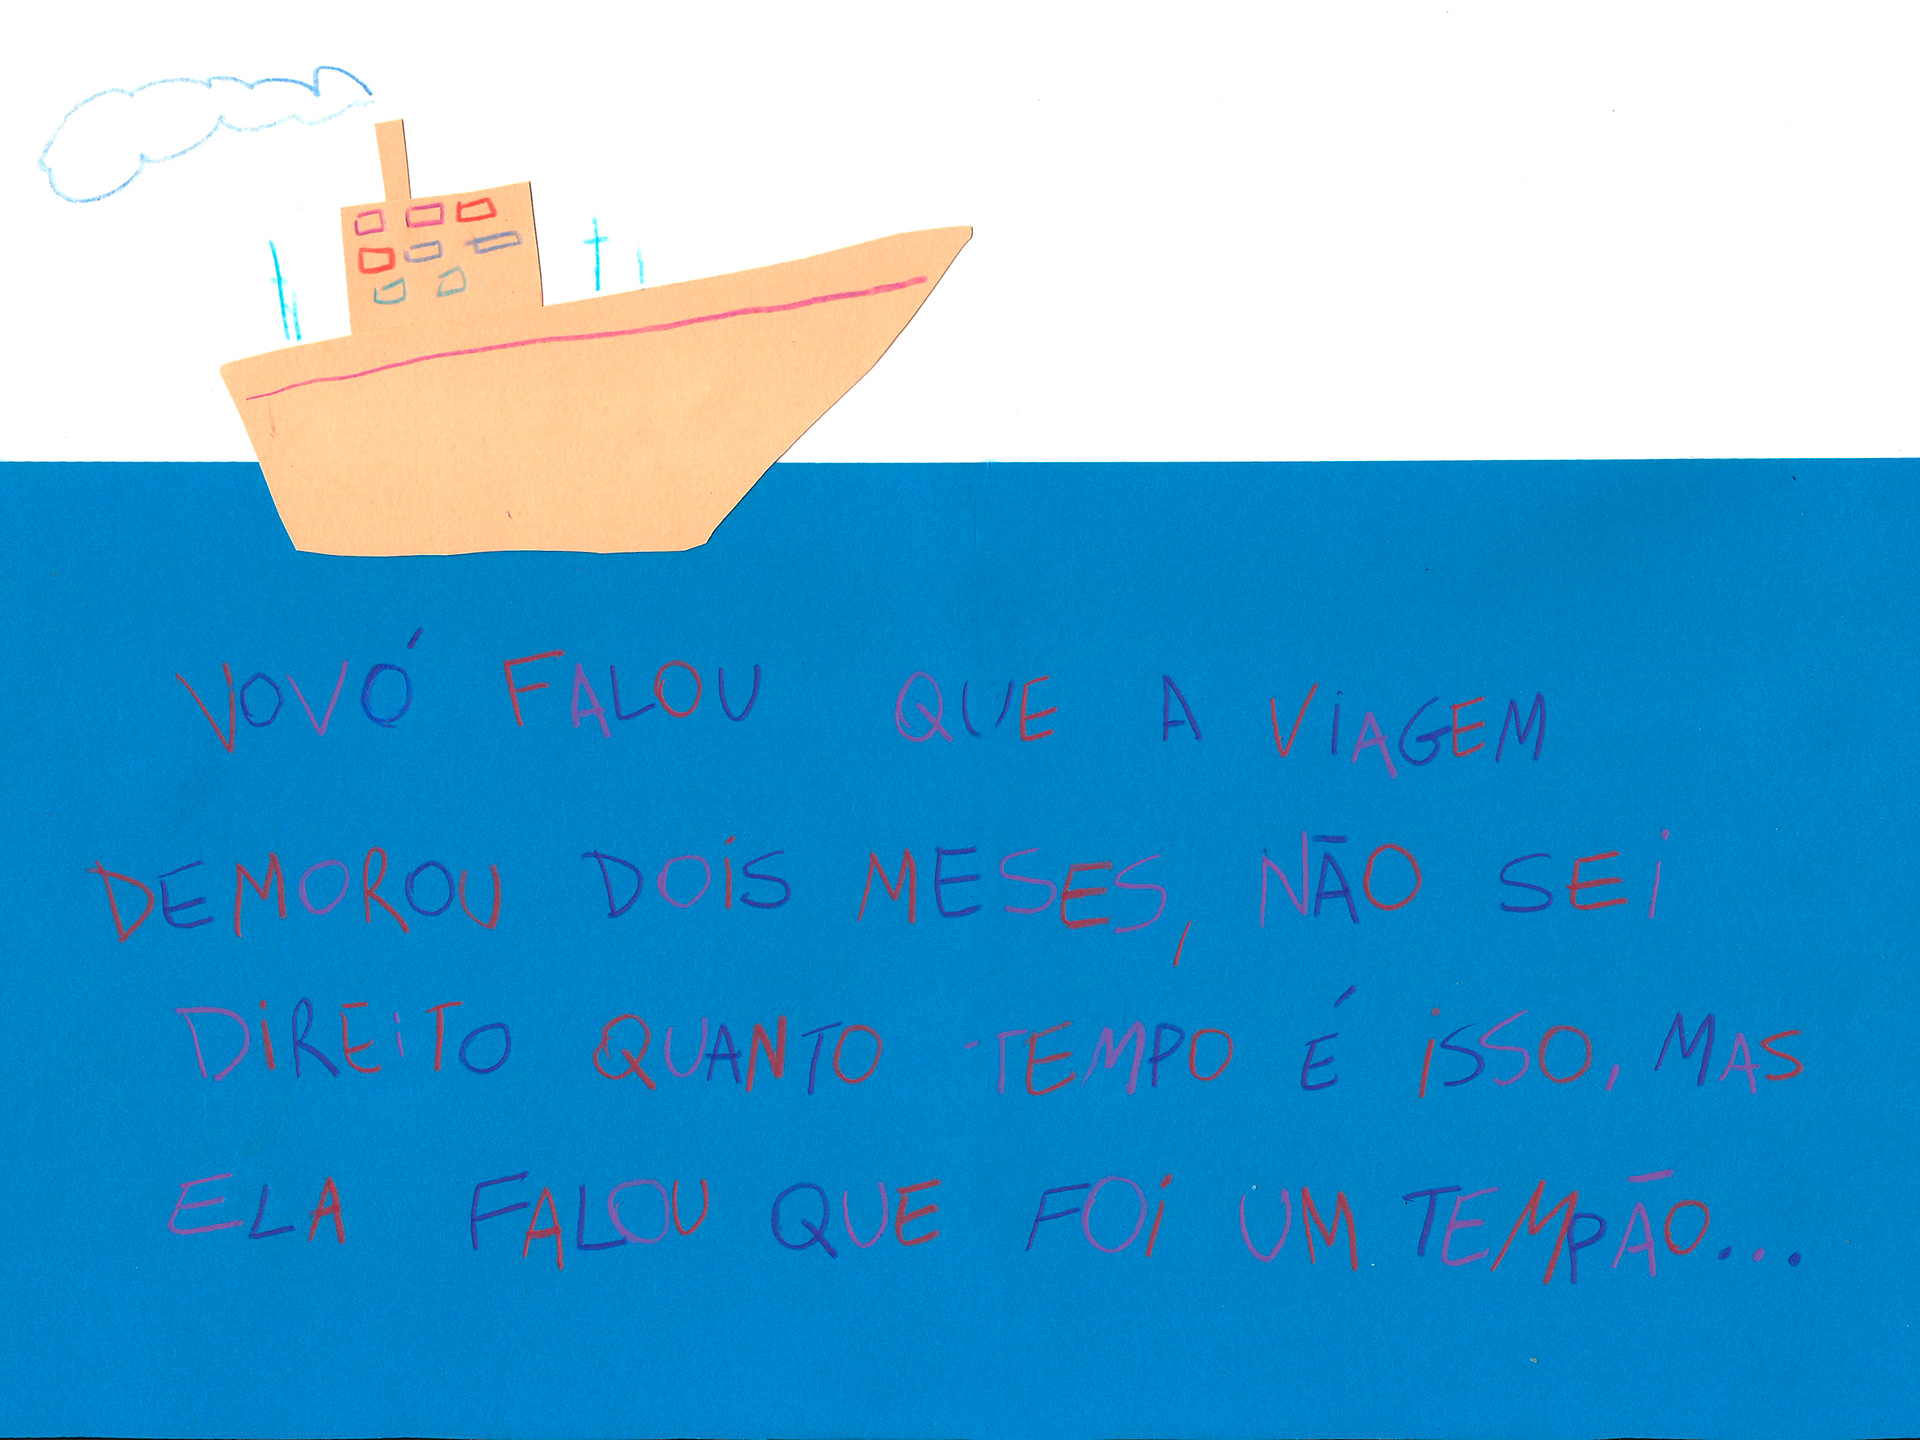 VOVÓ FALOU QUE A VIAGEM
DEMOROU DOIS MESES, NÃO SEI
DIREITO QUANTO TEMPO É ISSO, MAS
ELA FALOU QUE FOI UM TEMPÃO...